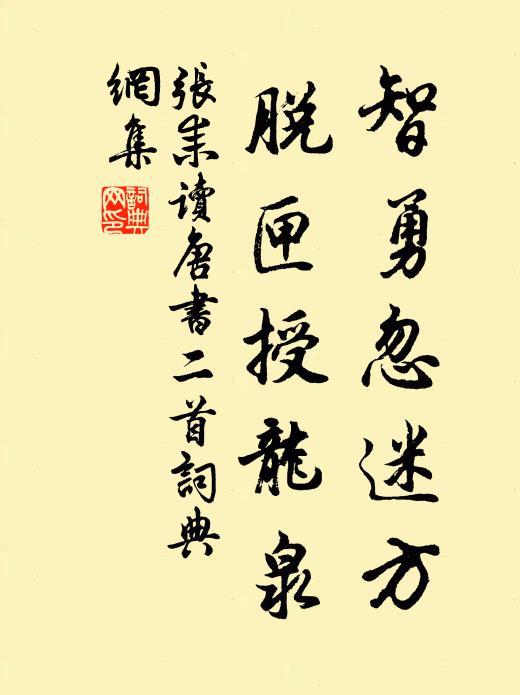 智勇忽迷方
脫匣授龍泉
張耒讀唐書二首詞典
網集
詞典
网印